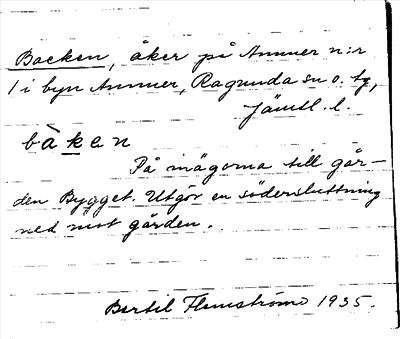 Backen, åker på Ammer n:r
1 i byn Ammer, Ragunda sn o. tg,
Jämtl. l.
bàken
På inägorna till går-
den Bygget. Utgör en södersluttning
ned mot gården.
Bertil Flemström 1935.